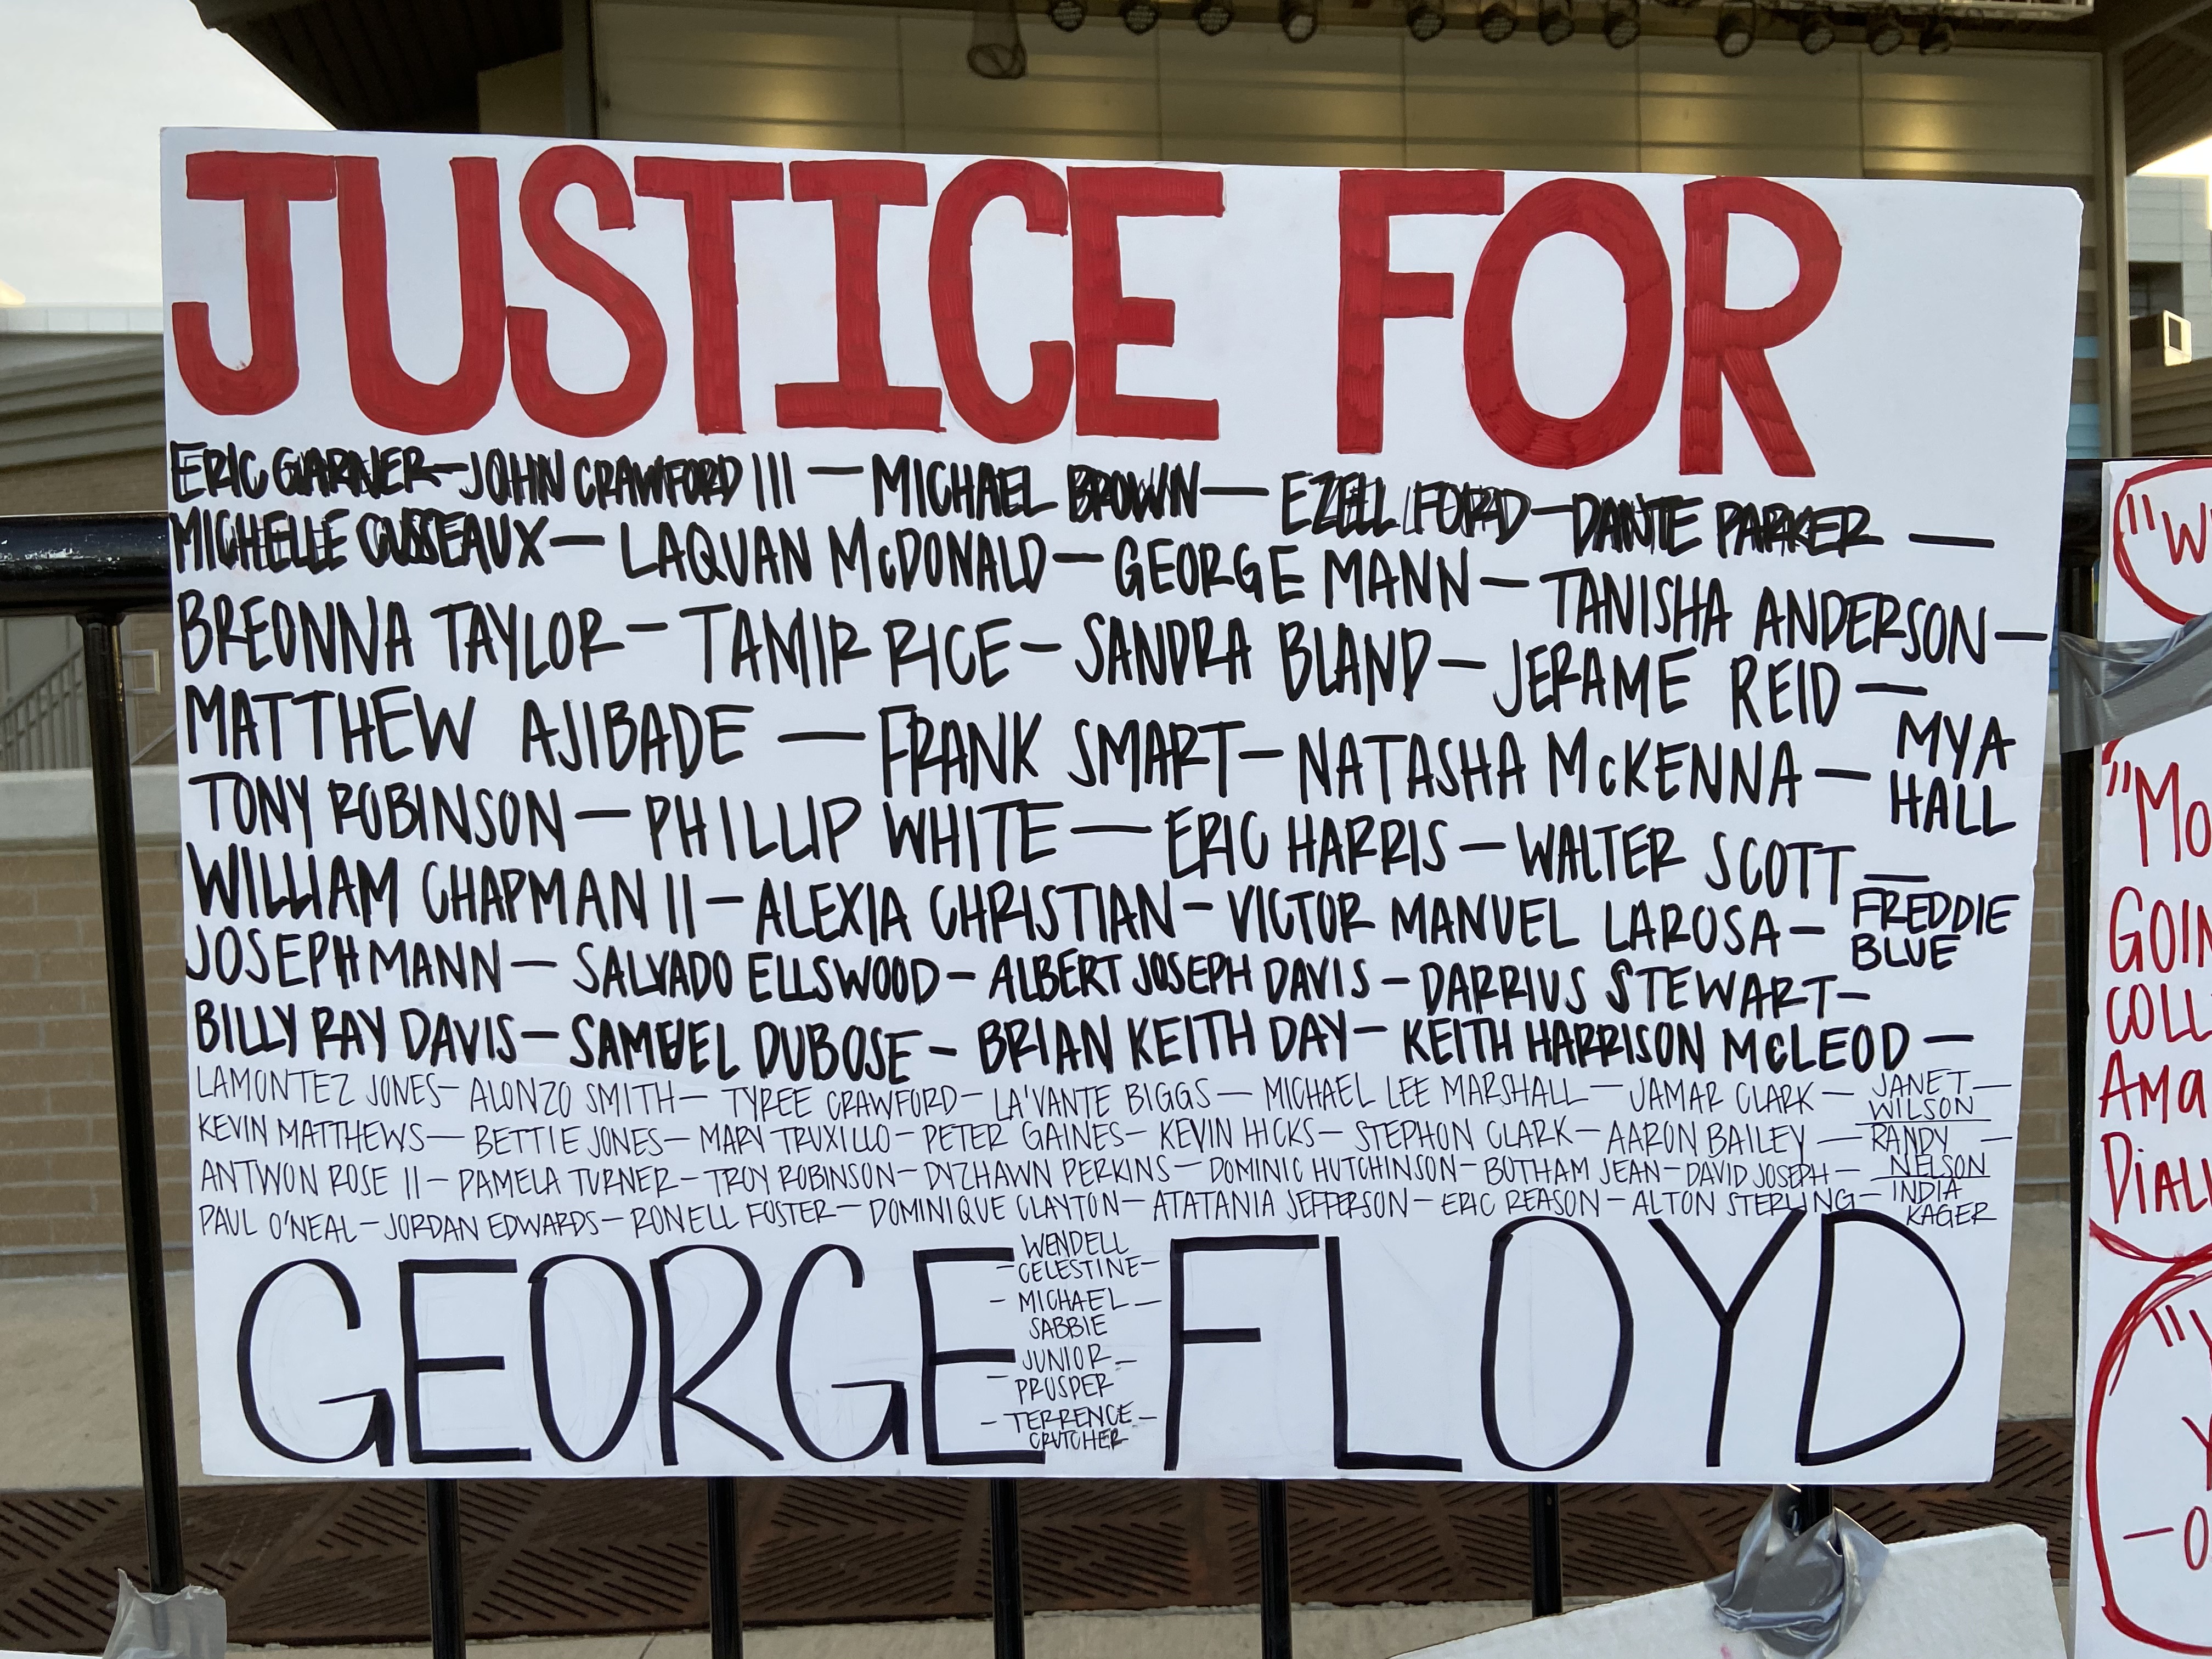 JUSTICE FOR
ERIC GARNER — JOHN CRAWFORD III — MICHAEL BROWN — EZELL FORD — DANTE PARKER —
MICHELLE CUSSEAUX — LAQUAN McDONALD — GEORGE MANN — TANISHA ANDERSON —
BREONNA TAYLOR — TAMIR RICE — SANDRA BLAND — JERAME REID —
MATTHEW AJIBADE — FRANK SMART — NATASHA McKENNA — MYA HALL
TONY ROBINSON — PHILLIP WHITE — ERIC HARRIS — WALTER SCOTT —
WILLIAM CHAPMAN II — ALEXIA CHRISTIAN — VICTOR MANUEL LAROSA — FREDDIE BLUE
JOSEPH MANN — SALVADO ELLSWOOD — ALBERT JOSEPH DAVIS — DARRIUS STEWART —
BILLY RAY DAVIS — SAMUEL DUBOSE — BRIAN KEITH DAY — KEITH HARRISON McLEOD —
LAMONTEZ JONES — ALONZO SMITH — TYREE CRAWFORD — LA'VANTE BIGGS — MICHAEL LEE MARSHALL — JAMAR CLARK — JANET WILSON —
KEVIN MATTHEWS — BETTIE JONES — MARY TRUXILLO — PETER GAINES — KEVIN HICKS — STEPHON CLARK — AARON BAILEY — RANDY NELSON —
ANTWON ROSE II — PAMELA TURNER — TROY ROBINSON — DYZHAWN PERKINS — DOMINIC HUTCHINSON — BOTHAM JEAN — DAVID JOSEPH —
PAUL O'NEAL — JORDAN EDWARDS — RONELL FOSTER — DOMINIQUE CLAYTON — ATATANIA JEFFERSON — ERIC REASON — ALTON STERLING — INDIA KAGER
GEORGE FLOYD
WENDELL
— CELESTINE —
— MICHAEL —
SABBIE
JUNIOR —
— PROSPER
— TERRENCE —
CRUTCHER
"W
"MO
GOIN
COLL
AMO
DIAL